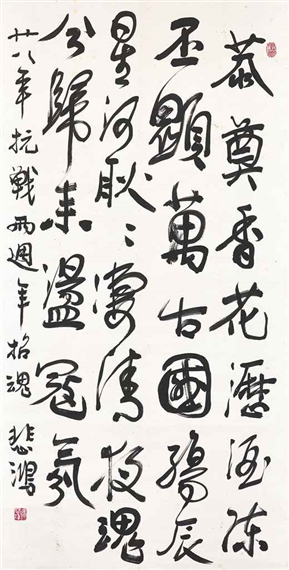 恭奠香花瀝酒陳
丕顯萬古國殤辰
星河耿〻淒清夜魂
兮歸來盪寇氛
廿八年抗戰兩週年招魂 悲鴻